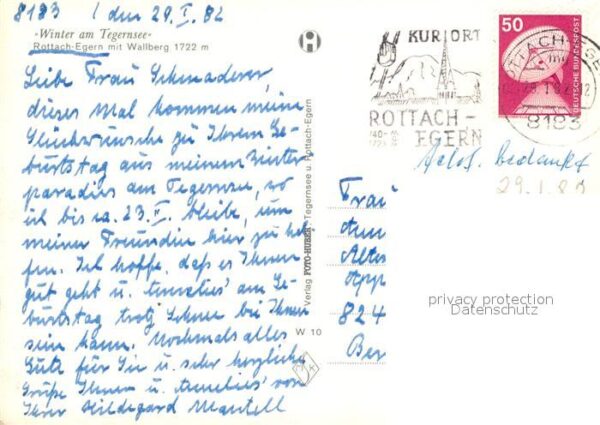 8183 / den 29.I.82
»Winter am Tegernsee«
Rottach-Egern mit Wallberg 1722 m
Liebe Frau Schmaderer,
dieses Mal kommen meine
Glückwünsche zu Ihrem Ge-
burtstag aus meinem Winter
paradies am Tegernsee, wo
ich bis ca. 23.II. bleibe, um
meiner Freundin hier zu hel
fen. Ich hoffe, daß es Ihnen
gut geht u. Annelies' am Ge-
burtstag trotz Schnee bei Ihnen
sein kann. Nochmals alles
Gute für Sie u. sehr herzliche
Grüße Ihnen u. Annelies' von
Ihrer Hildegard Mantell
Verlag FOTO-HUBER · Tegernsee u. Rottach-Egern
W 10
KURORT
ROTTACH-
EGERN
50
DEUTSCHE BUNDESPOST
8183
telef. bedankt
29.1.82
Frau
Ann
Altes
App
824
Ber
privacy protection
Datenschutz